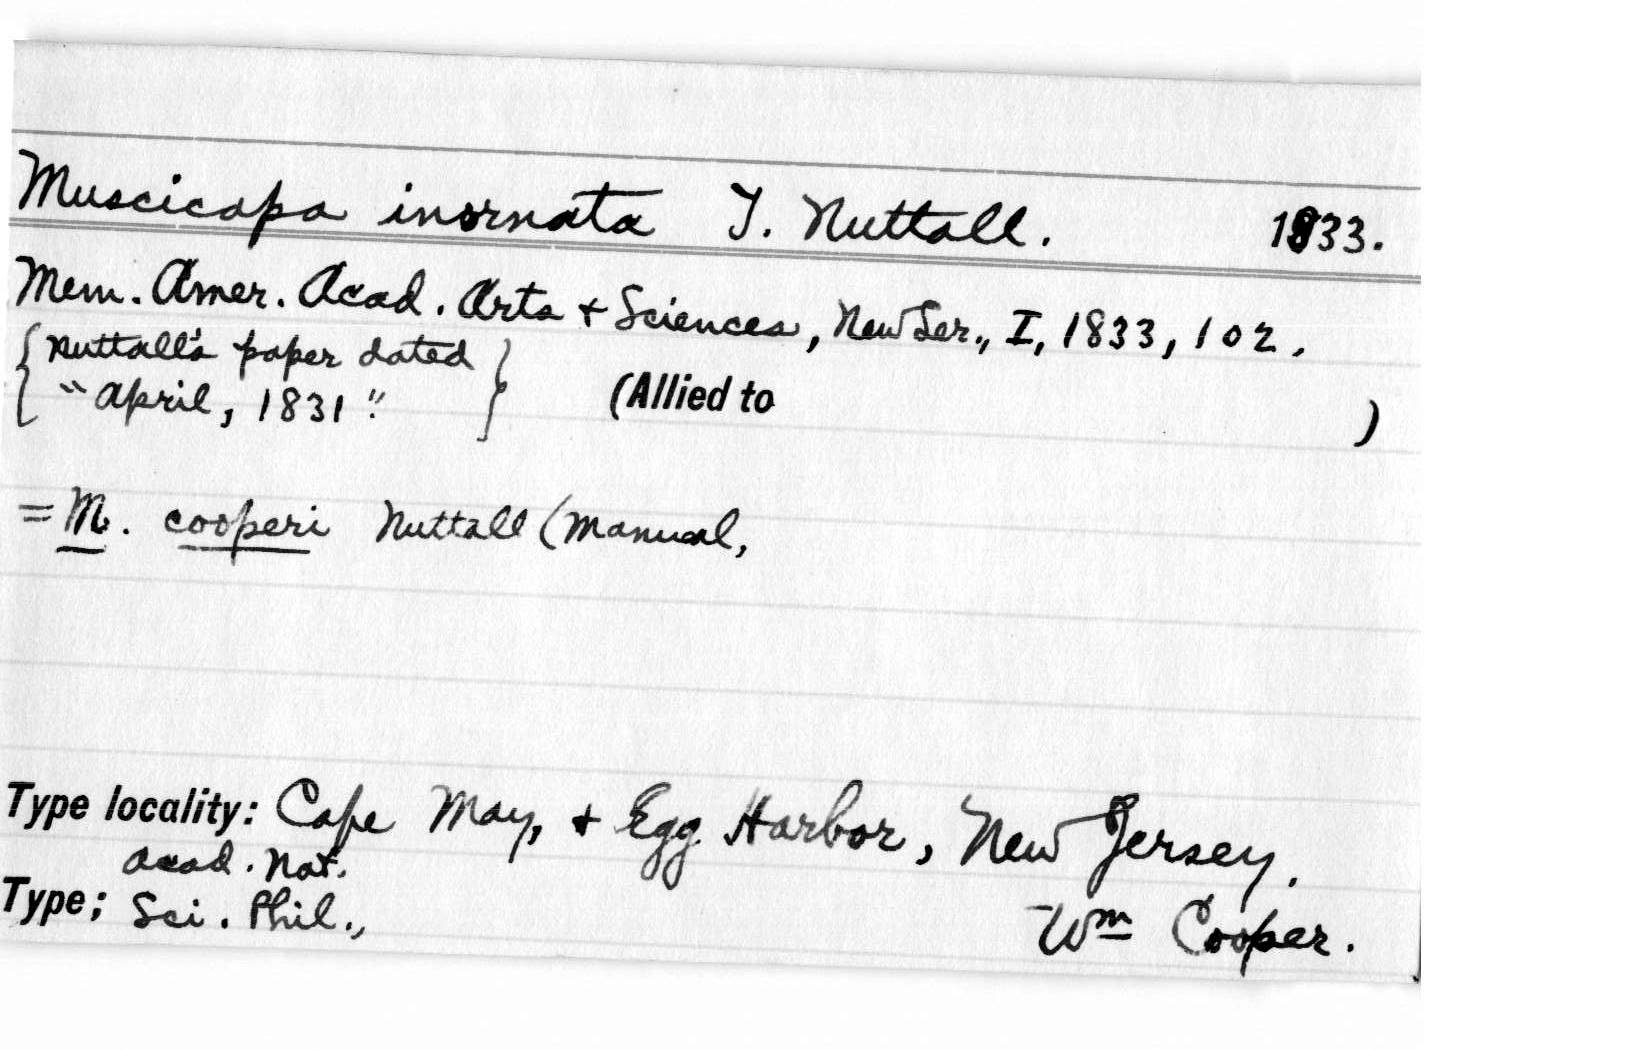 Muscicapa inornata T. Nuttall. 1833.
Mem. Amer. Acad. Arts + Sciences, New Ser., I, 1833, 102.
{ Nuttall's paper dated }
{ "April, 1831". } (Allied to )
= M. cooperi Nuttall (Manual,
Type locality: Cape May, + Egg Harbor, New Jersey.
Acad. Nat.
Type; Sci. Phil., Wm Cooper.